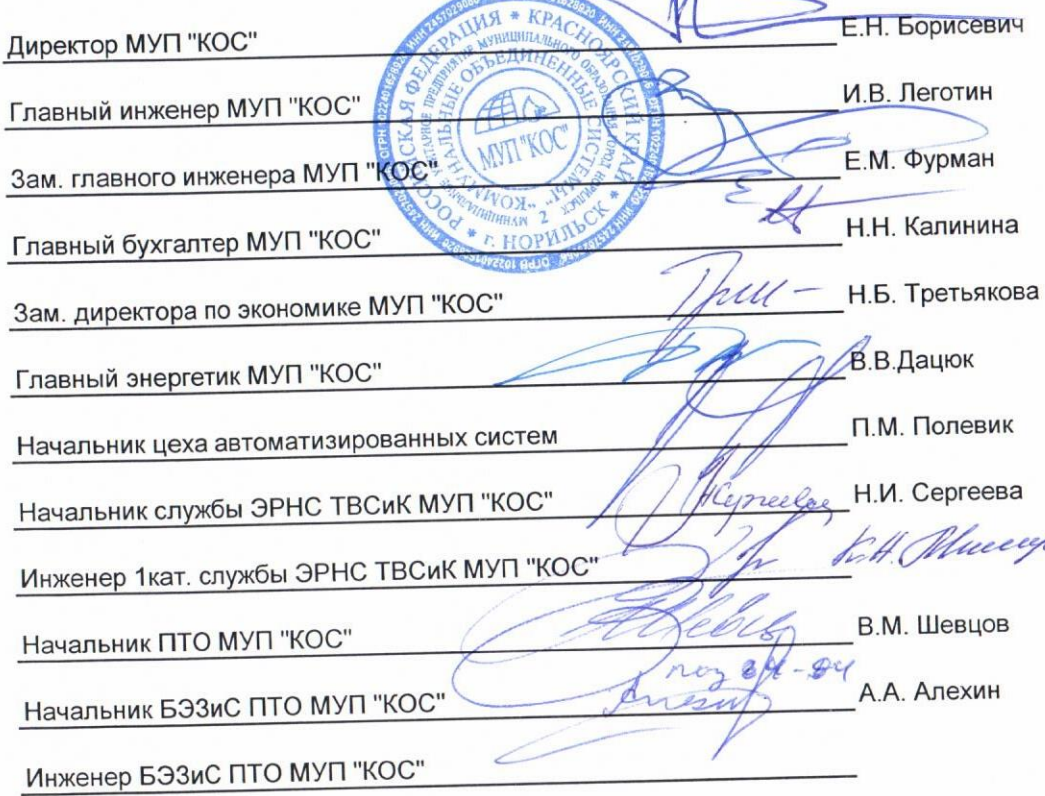 Директор МУП "КОС" Е.Н. Борисевич
Главный инженер МУП "КОС" И.В. Леготин
Зам. главного инженера МУП "КОС" Е.М. Фурман
Главный бухгалтер МУП "КОС" Н.Н. Калинина
Зам. директора по экономике МУП "КОС" Н.Б. Третьякова
Главный энергетик МУП "КОС" В.В.Дацюк
Начальник цеха автоматизированных систем П.М. Полевик
Начальник службы ЭРНС ТВСиК МУП "КОС" Н.И. Сергеева
Инженер 1кат. службы ЭРНС ТВСиК МУП "КОС"
Начальник ПТО МУП "КОС" В.М. Шевцов
Начальник БЭЗиС ПТО МУП "КОС" А.А. Алехин
Инженер БЭЗиС ПТО МУП "КОС"
РОССИЙСКАЯ ФЕДЕРАЦИЯ * КРАСНОЯРСКИЙ КРАЙ * г. НОРИЛЬСК *
МУНИЦИПАЛЬНОЕ УНИТАРНОЕ ПРЕДПРИЯТИЕ МУНИЦИПАЛЬНОГО ОБРАЗОВАНИЯ ГОРОД НОРИЛЬСК
"КОММУНАЛЬНЫЕ ОБЪЕДИНЕННЫЕ СИСТЕМЫ"
МУП "КОС"
2